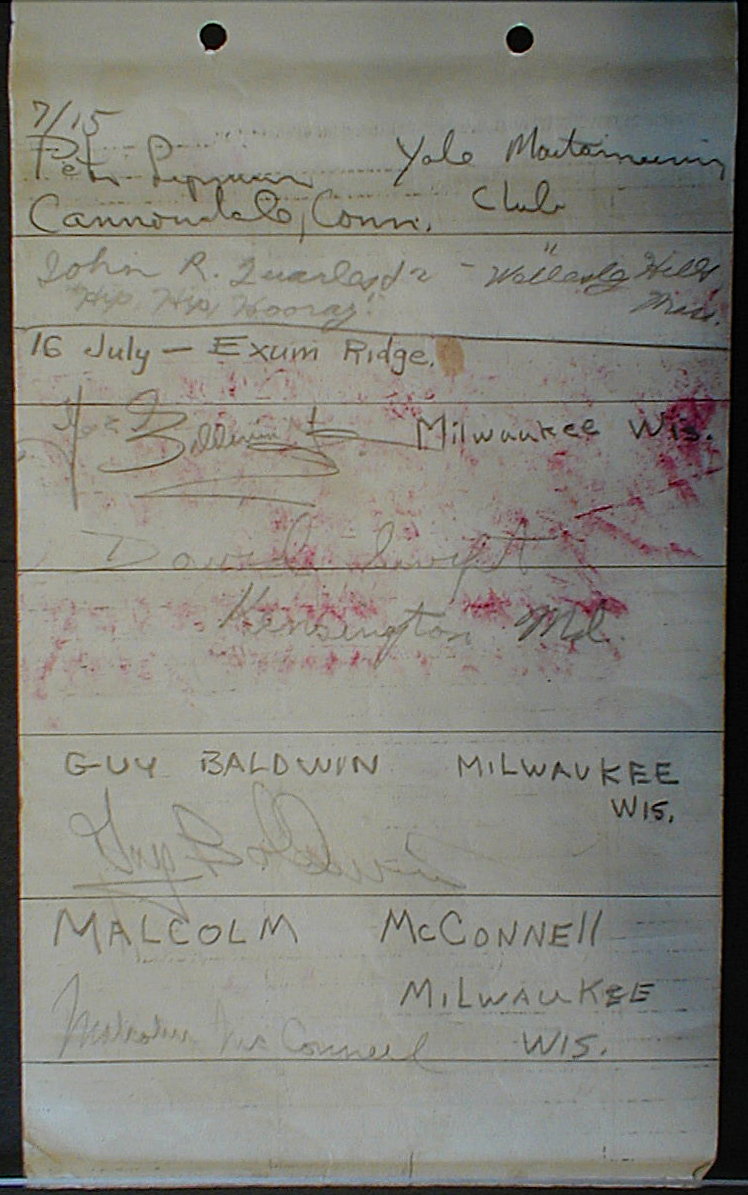 7/15
Pete Lipman Yale Mountaineering
Cannondale, Conn. Club
John R. Quarles Jr - " Wellesley Hills,
"Hip, Hip, Hooray!" Mass.
16 July — Exum Ridge.
Baldwin Milwaukee Wis.
David Swift
Kensington Md.
GUY BALDWIN MILWAUKEE
WIS.
Guy Baldwin
MALCOLM McCONNEll
MILWAUKEE
Malcolm McConnell WIS.